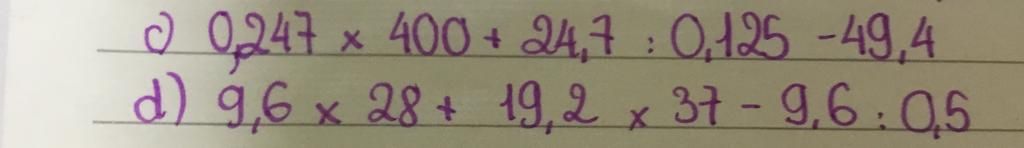 c) 0,247 x 400 + 24,7 : 0,125 - 49,4
d) 9,6 x 28 + 19,2 x 37 - 9,6 : 0,5